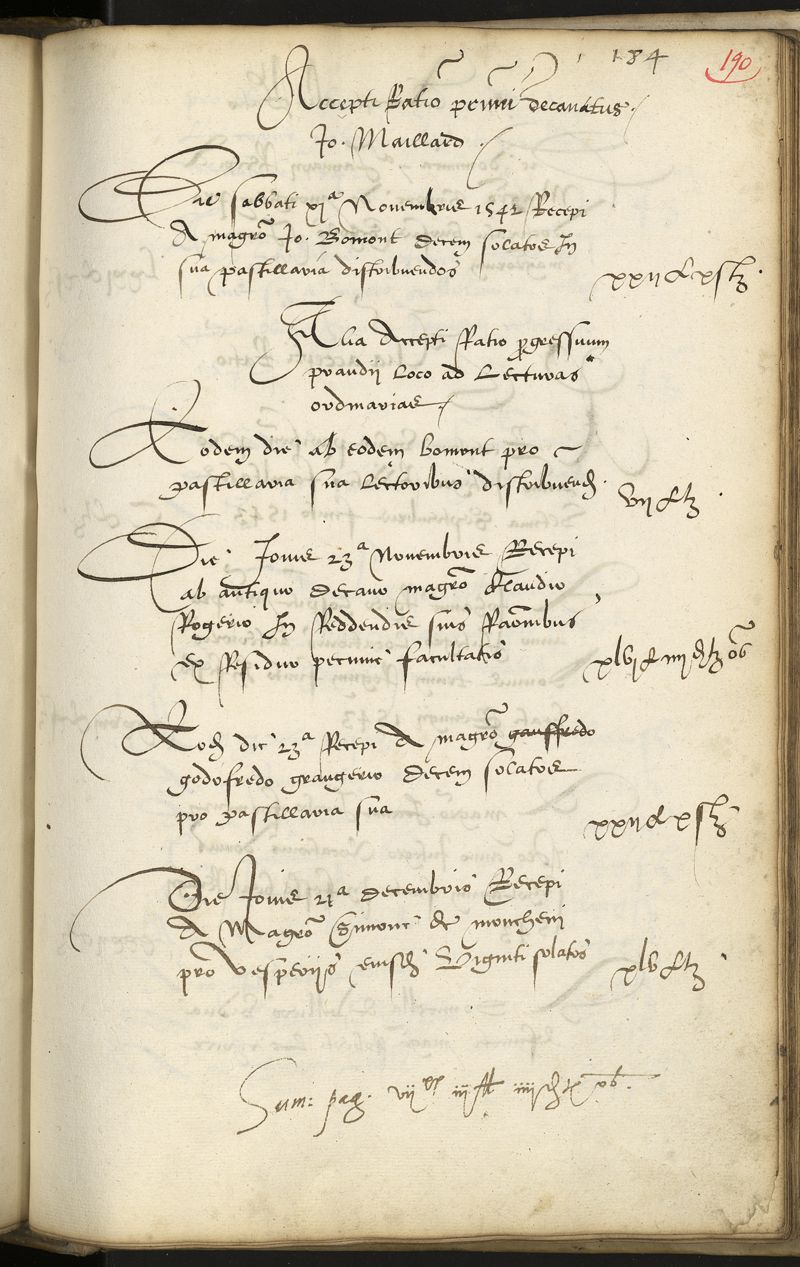 184 190
Accepti Ratiō primi decanatus.
Jo. Maillard.
Die sabbati xjª Novembris 1542 Recepi
A magrō Jo. Bomont decem solatos In
sua pastillaria distribuendos
xxij ℔ x s tz.
Alia Accepti Ratio progressuum
prandij Loco ad Lecturas
ordinarias.
Eodem die ab eodem bomont pro
pastillaria sua Lectoribus distribuend.
vij ℔ tz.
Die Jovis 23ª Novembris Recepi
ab antiquo decano magrō Claudio
Rogerio In Reddendis suis Raōnibus
ex Residuo pecunie facultatis
xlvj ℔ iiij s tz ob
Eod die 23ª Recepi A magrō gauffredo
godofredo grangerio decem solatos
pro pastillaria sua
xxij ℔ x s tz
Die Jovis 21ª decembris Recepi
A Magrō Simone de moncheni
pro vesperijs eiusd Viginti solatos
xlv ℔ tz.
Sum: pag. vij